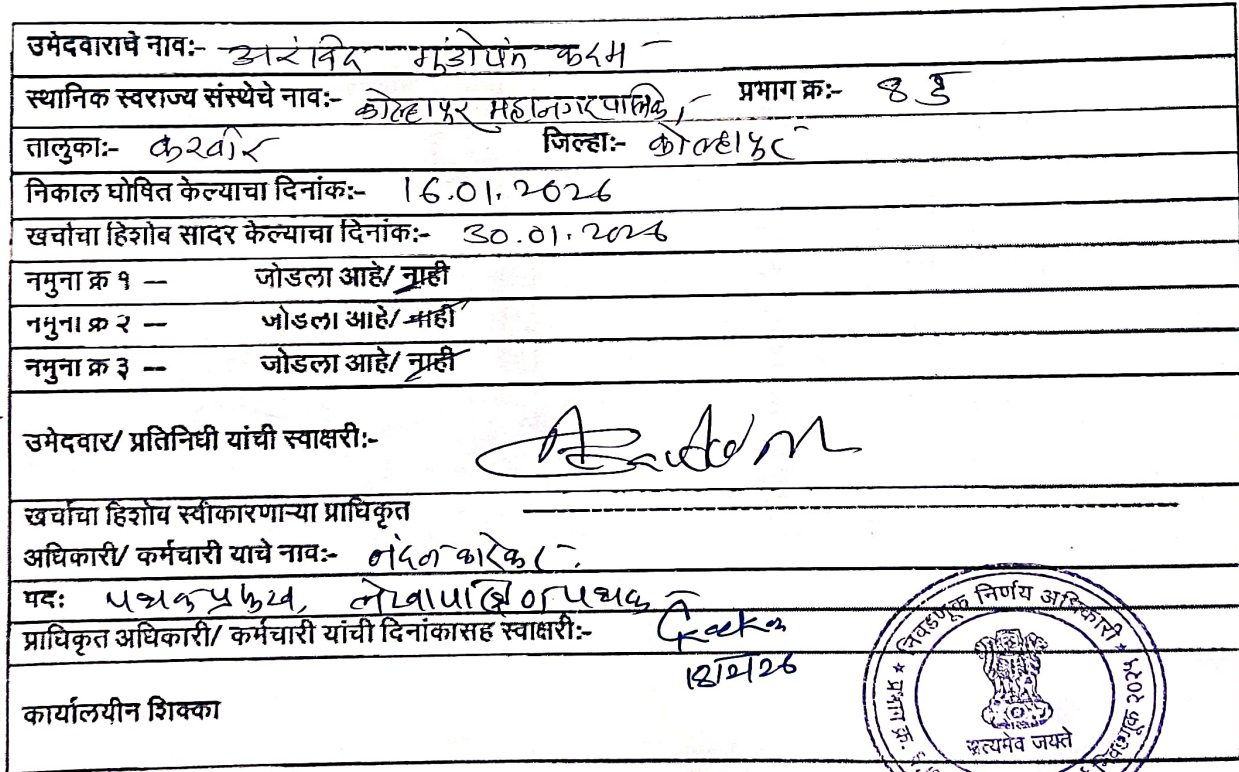 उमेदवाराचे नाव:- अरविंद गुंडोपंत कदम
स्थानिक स्वराज्य संस्थेचे नाव:- कोल्हापूर महानगरपालिका, प्रभाग क्र:- ८
तालुका:- करवीर जिल्हा:- कोल्हापूर
निकाल घोषित केल्याचा दिनांक:- 16.01.2026
खर्चाचा हिशोब सादर केल्याचा दिनांक:- 30.01.2026
नमुना क्र १ – जोडला आहे/ नाही
नमुना क्र २ – जोडला आहे/ नाही
नमुना क्र ३ – जोडला आहे/ नाही
उमेदवार/ प्रतिनिधी यांची स्वाक्षरी:-
खर्चाचा हिशोब स्वीकारणाऱ्या प्राधिकृत
अधिकारी/ कर्मचारी याचे नाव:- नंदन कारेकर
पदः पथक प्रमुख, लेखापरिक्षण पथक
प्राधिकृत अधिकारी/ कर्मचारी यांची दिनांकासह स्वाक्षरी:-
18/2/26
कार्यालयीन शिक्का
निवडणूक निर्णय अधिकारी
प्रभाग क्र.
निवडणूक २०२५
सत्यमेव जयते